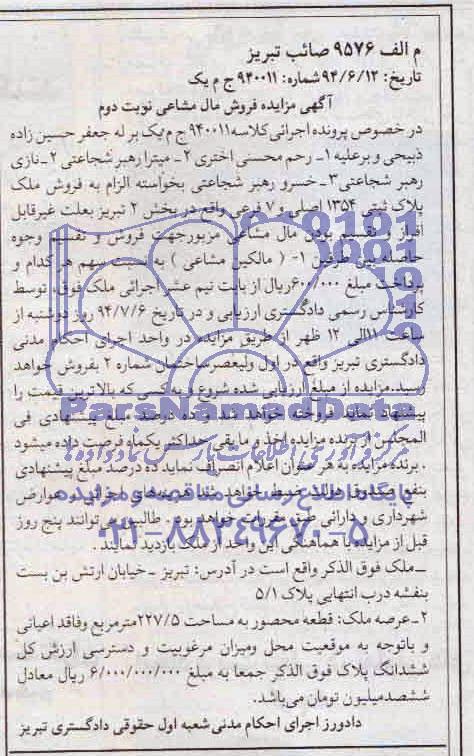 م الف ۹۵۷۶ صائب تبریز
تاریخ: ۹۴/۶/۱۲ شماره: ۹۴۰۰۱۱ ج م یک
آگهی مزایده فروش مال مشاعی نوبت دوم
در خصوص پرونده اجرائی کلاسه ۹۴۰۰۱۱ ج م یک بر له جعفر حسین زاده
ذبیحی و برعلیه ۱- رحم محسنی اختری ۲- میترا رهبر شجاعتی ۲- نازی
رهبر شجاعتی ۳- خسرو رهبر شجاعتی بخواسته الزام به فروش ملک
پلاک ثبتی ۱۳۵۴ اصلی و ۷ فرعی واقع در بخش ۲ تبریز بعلت غیرقابل
افراز و تقسیم بودن مال مشاعی مزبور جهت فروش و تقسیم وجوه
حاصله بین طرفین ۱- ( مالکین مشاعی ) به نسبت سهم هر کدام و
پرداخت مبلغ ۶۰۰/۰۰۰ ریال از بابت نیم عشر اجرائی ملک فوق، توسط
کارشناس رسمی دادگستری ارزیابی و در تاریخ ۹۴/۷/۶ روز دوشنبه از
ساعت ۱۱ الی ۱۲ ظهر از طریق مزایده در واحد اجرای احکام مدنی
دادگستری تبریز واقع در اول ولیعصر ساختمان شماره ۲ بفروش خواهد
رسید. مزایده از مبلغ ارزیابی شده شروع و به کسی که بالاترین قیمت را
پیشنهاد نماید فروخته خواهد شد و ده درصد مبلغ پیشنهادی فی
المجلس از برنده مزایده اخذ و مابقی حداکثر یکماه فرصت داده میشود
. برنده مزایده به هر عنوان اعلام انصراف نماید ده درصد مبلغ پیشنهادی
بنفع صندوق دولت ضبط خواهد شد هزینه های اجرائی و عوارض
شهرداری و دارائی طبق مقررات خواهد بود. طالبین می توانند پنج روز
قبل از مزایده با هماهنگی این واحد از ملک بازدید نمایند .
ــ ملک فوق الذکر واقع است در آدرس: تبریز - خیابان ارتش بن بست
بنفشه درب انتهایی پلاک ۵/۱
۲- عرصه ملک: قطعه محصور به مساحت ۲۲۷/۵ مترمربع وفاقد اعیانی
و باتوجه به موقعیت محل ومیزان مرغوبیت و دسترسی ارزش کل
ششدانگ پلاک فوق الذکر جمعا به مبلغ ۶/۰۰۰/۰۰۰/۰۰۰ ریال معادل
ششصد میلیون تومان می باشد.
دادورز اجرای احکام مدنی شعبه اول حقوقی دادگستری تبریز
ParsNamadData
مرکز فرآوری اطلاعات پارس نماد داده ها
پایگاه اطلاع رسانی مناقصه و مزایده
۰۲۱-۸۸۳۴۹۶۷۰-۵